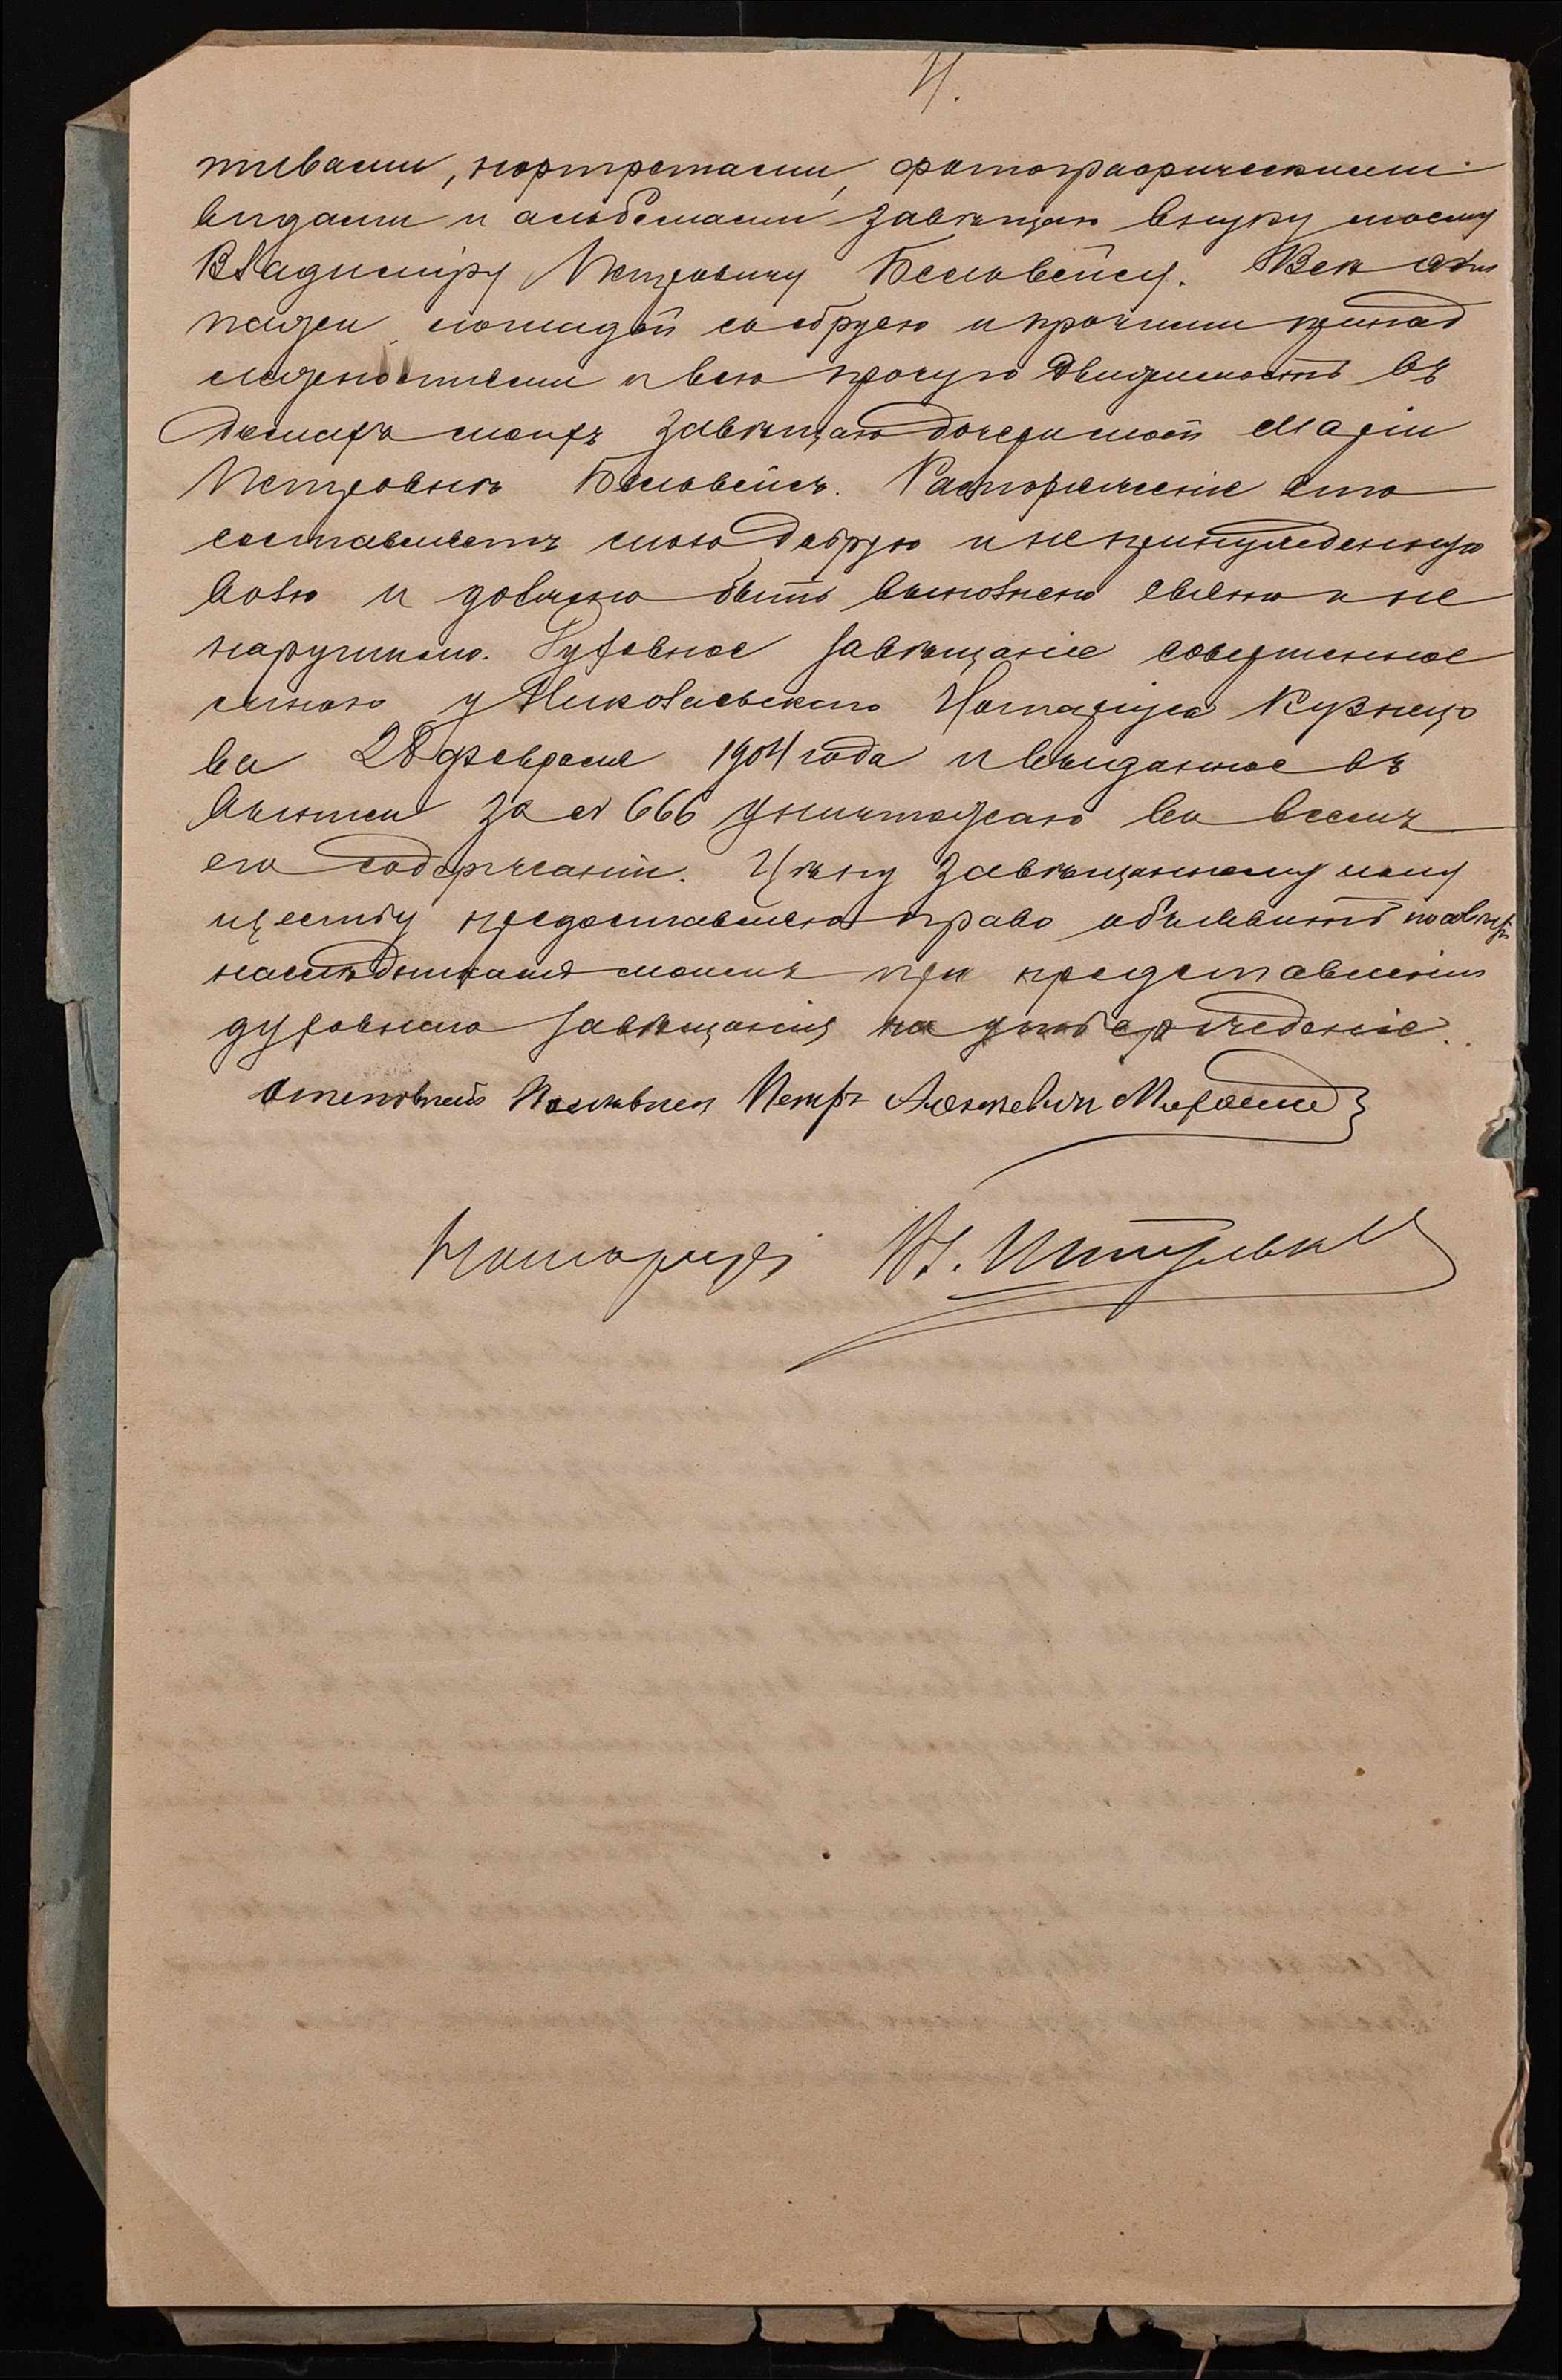 4.
тивами, портретами, фотографическими
видами и альбомами завѣщаю внуку моему
Владимíру Петровичу Беловейсу. Всѣ эки
пажи лошадей со сбруею и прочими принад
лежностями и всю прочую движимость въ
домахъ моихъ завѣщаю дочери моей Маріи
Петровнѣ Беловейсъ. Распоряженіе это
составляетъ мою добрую и непринужденную
волю и должно быть выполнено свято и не
нарушимо. Духовное завѣщаніе совершенное
мною у Николаевскаго Нотаріуса Кузнецо
ва 28 февраля 1904 года и выданное въ
выписи за № 666 уничтожаю во всемъ
его содержаніи. Цѣну завѣщанному иму
ществу предоставляю право объявить
наслѣдникамъ моимъ при представленіи
духовнаго завѣщанія на утвержденіе.
Отставной Полковник Петръ
Нотаріусъ